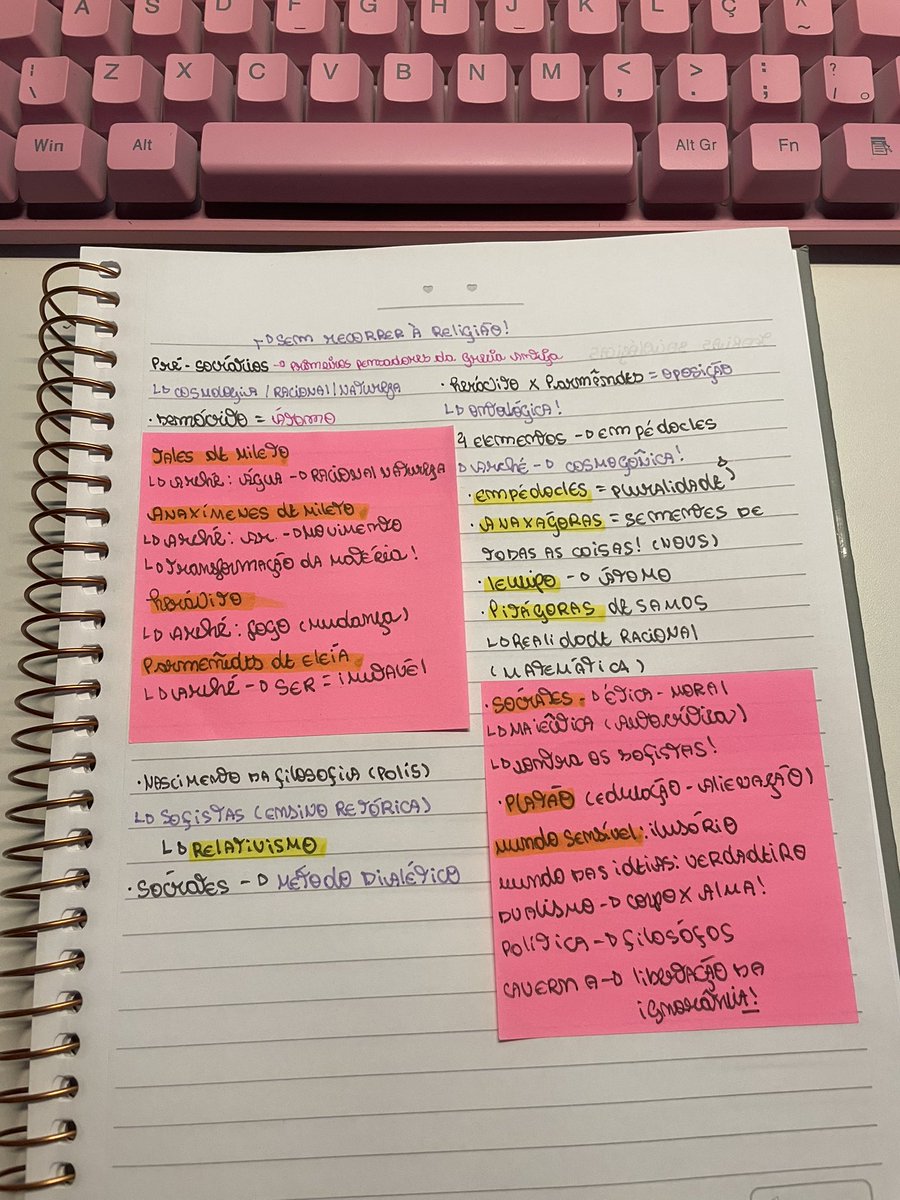 A S D F G H J K L Ç ^ ~
| \ Z X C V B N M < , > . : ; ? /
Win Alt Alt Gr Fn
SEM RECORRER À RELIGIÃO!
Pré-socráticos → primeiros pensadores da Grécia Antiga
↳ COSMOLOGIA / RACIONAL / NATUREZA
· Demócrito = ÁTOMO
TALES DE MILETO
↳ Arché: ÁGUA → RACIONAL NATUREZA
ANAXÍMENES DE MILETO
↳ Arché: Ar → MOVIMENTO
↳ TRANSFORMAÇÃO DA MATÉRIA!
Heráclito
↳ Arché: FOGO (MUDANÇA)
Parmenêdes de Eleia
↳ Arché → SER = IMUTAVÉL
· NASCIMENTO DA FILOSOFIA (POLIS)
↳ SOFISTAS (ENSINO RETÓRICA)
↳ RELATIVISMO
· SÓCRATES → MÉTODO DIALÉTICO
· Heráclito X Parmêndes = OPOSIÇÃO
↳ ONTOLÓGICA!
4 elementos → Empédocles
↳ Arché → COSMOGÔNICA!
· EMPÉDOCLES = PLURALIDADE
· ANAXÁGORAS = SEMENTES DE
TODAS AS COISAS! (NOUS)
· leucipo → ÁTOMO
· PITÁGORAS DE SAMOS
↳ REALIDADE RACIONAL
(MATEMÁTICA)
· SÓCRATES → ÉTICA - MORAL
↳ MAIÊUTICA (AUTOCRÍTICA)
↳ contra os SOFISTAS!
· PLATÃO (EDUCAÇÃO - ALIENAÇÃO)
MUNDO SENSÍVEL: ILUSÓRIO
MUNDO DAS IDEIAS: VERDADEIRO
DUALISMO → CORPO X ALMA!
POLITICA → FILOSÓFOS
CAVERNA → LIBERTAÇÃO DA
IGNORÂNCIA!